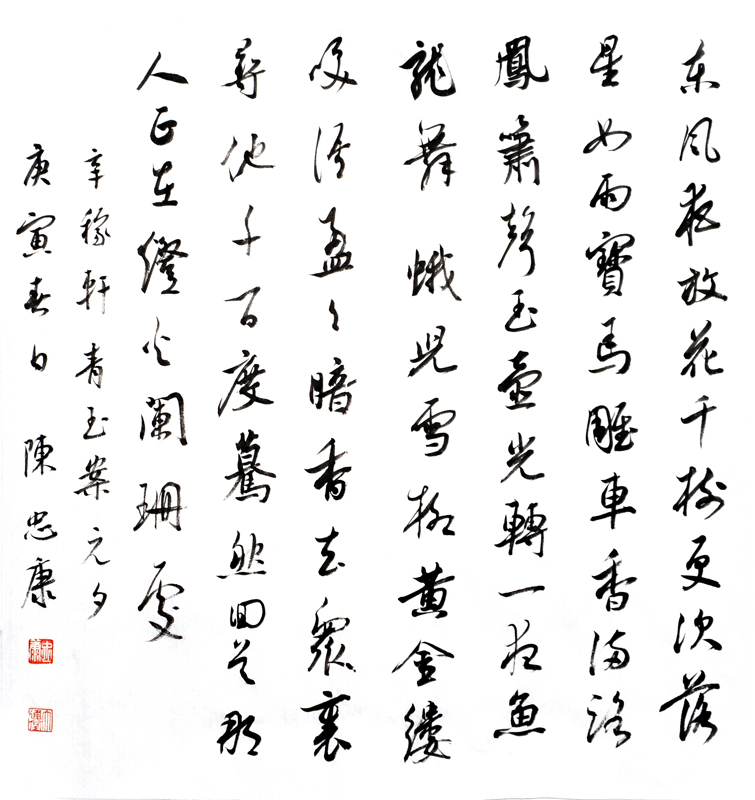 東風夜放花千樹更吹落
星如雨寶馬雕車香滿路
鳳簫聲玉壺光轉一夜魚
龍舞 蛾兒雪柳黃金縷
咲語盈々暗香去眾裏
尋他千百度驀然回首那
人正在燈火闌珊處
辛稼軒青玉案元夕
庚寅春日 陳忠康